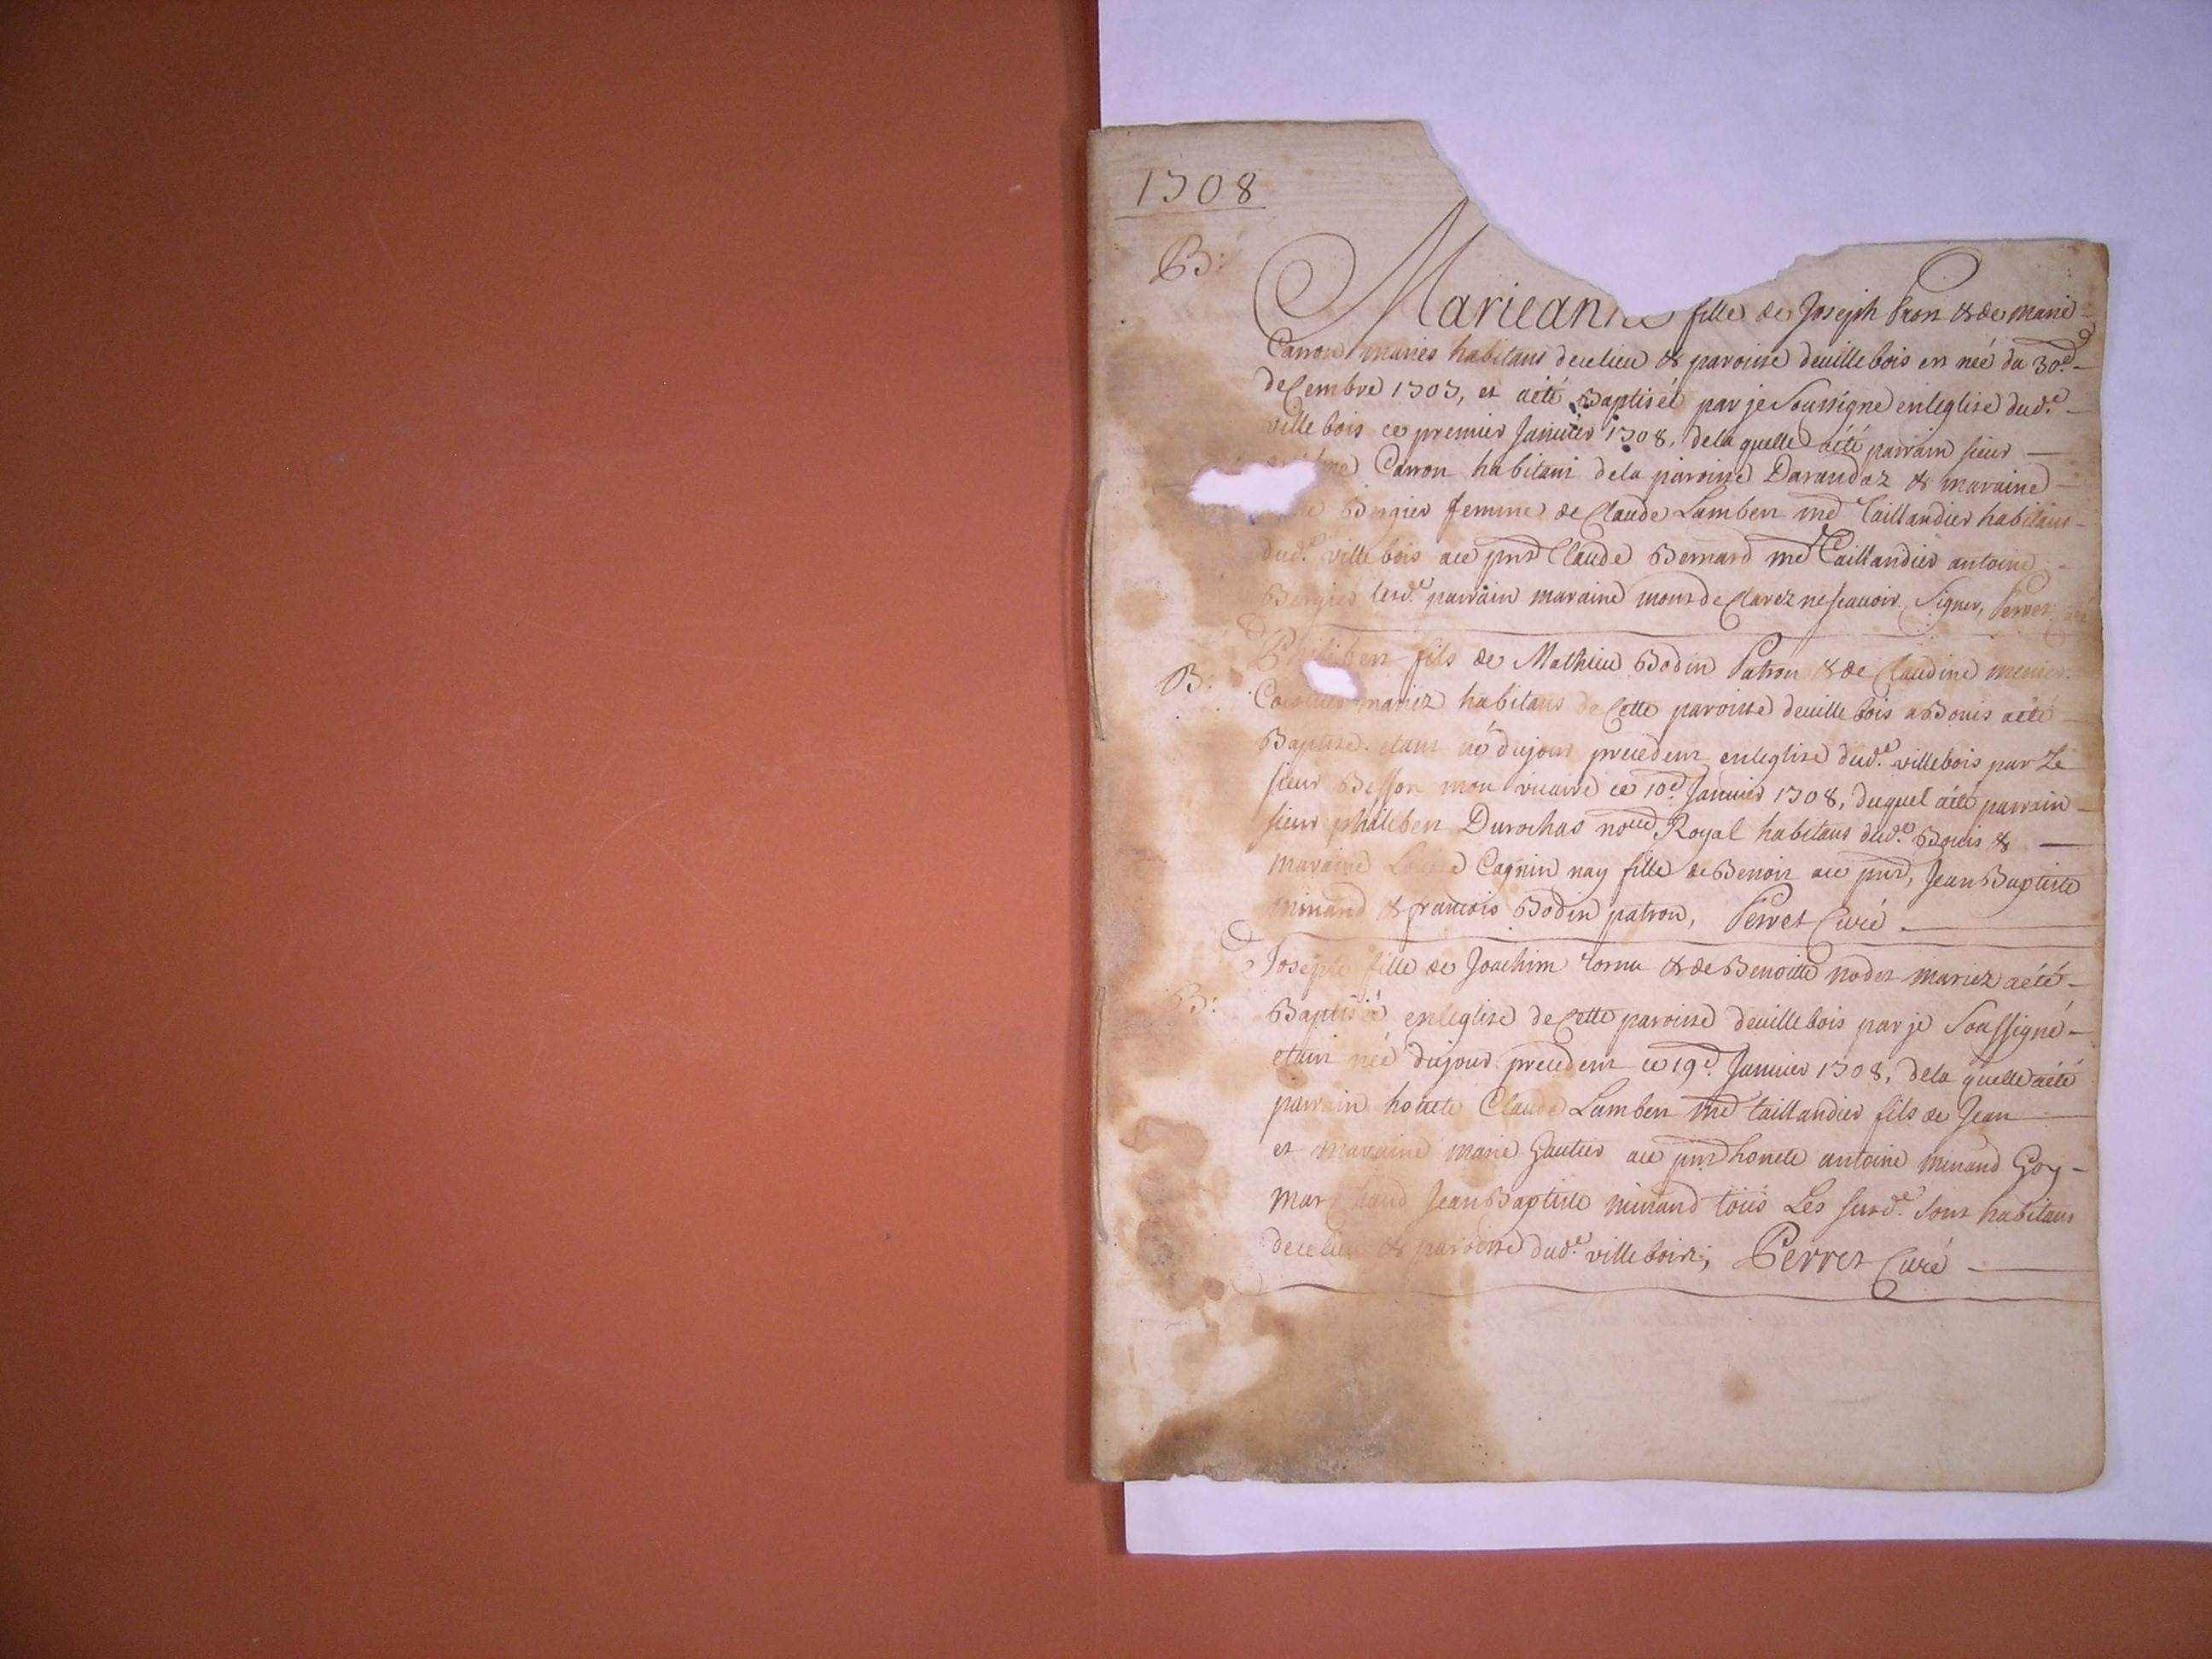 1708
B:
Marieanne fille de Joseph Pron & de marie
Carron mariés habitans decelieu & paroisse deuillebois en née du 30.e
decembre 1707, et aété Baptisée par je Soussigne enleglise dud.e
ville bois ce premier Januier 1708, dela quelle aété parrain sieur
Carron habitant dela paroisse Darandaz & maraine
Bergier femme de Claude Lamber md Taillandier habitans
dud.e villebois aue pnd Claude Bernard md Taillandier antoine
Bergier lesd.e parrain maraine mont declarez nescauoir Signer, Perret
B:
fils de Mathieu Bodin Patron & de Claudine menier
mariez habitans de Cette paroisse deuillebois a Bouis aété
Baptisé etant né dujour precedent enleglise dud.e villebois par Le
sieur Besson mon vicaire ce 10e Januier 1708, duquel aété parrain
sieur philiber Durochas noue Royal habitans dud.e Bouis &
maraine Cagnin nay fille de Benoit aue pnd, Jean Baptiste
minand & francois Bodin patron, Perret Curé
B:
Josephe fille de Joachim Cornu & de Benoitte nodet mariez aété
Baptisée enleglise de Cette paroisse deuillebois par je Soussigné
etant née dujour precedent ce 19e. Januier 1708, dela quelle aété
parrain honete Claude Lamber md taillandier fils de Jean
et maraine marie Gautier aue pnd honete antoine minand Goy
marchand Jean Baptiste minand tous Les susd.e sont habitans
decelieu & paroisse dud.e villebois; Perret Curé